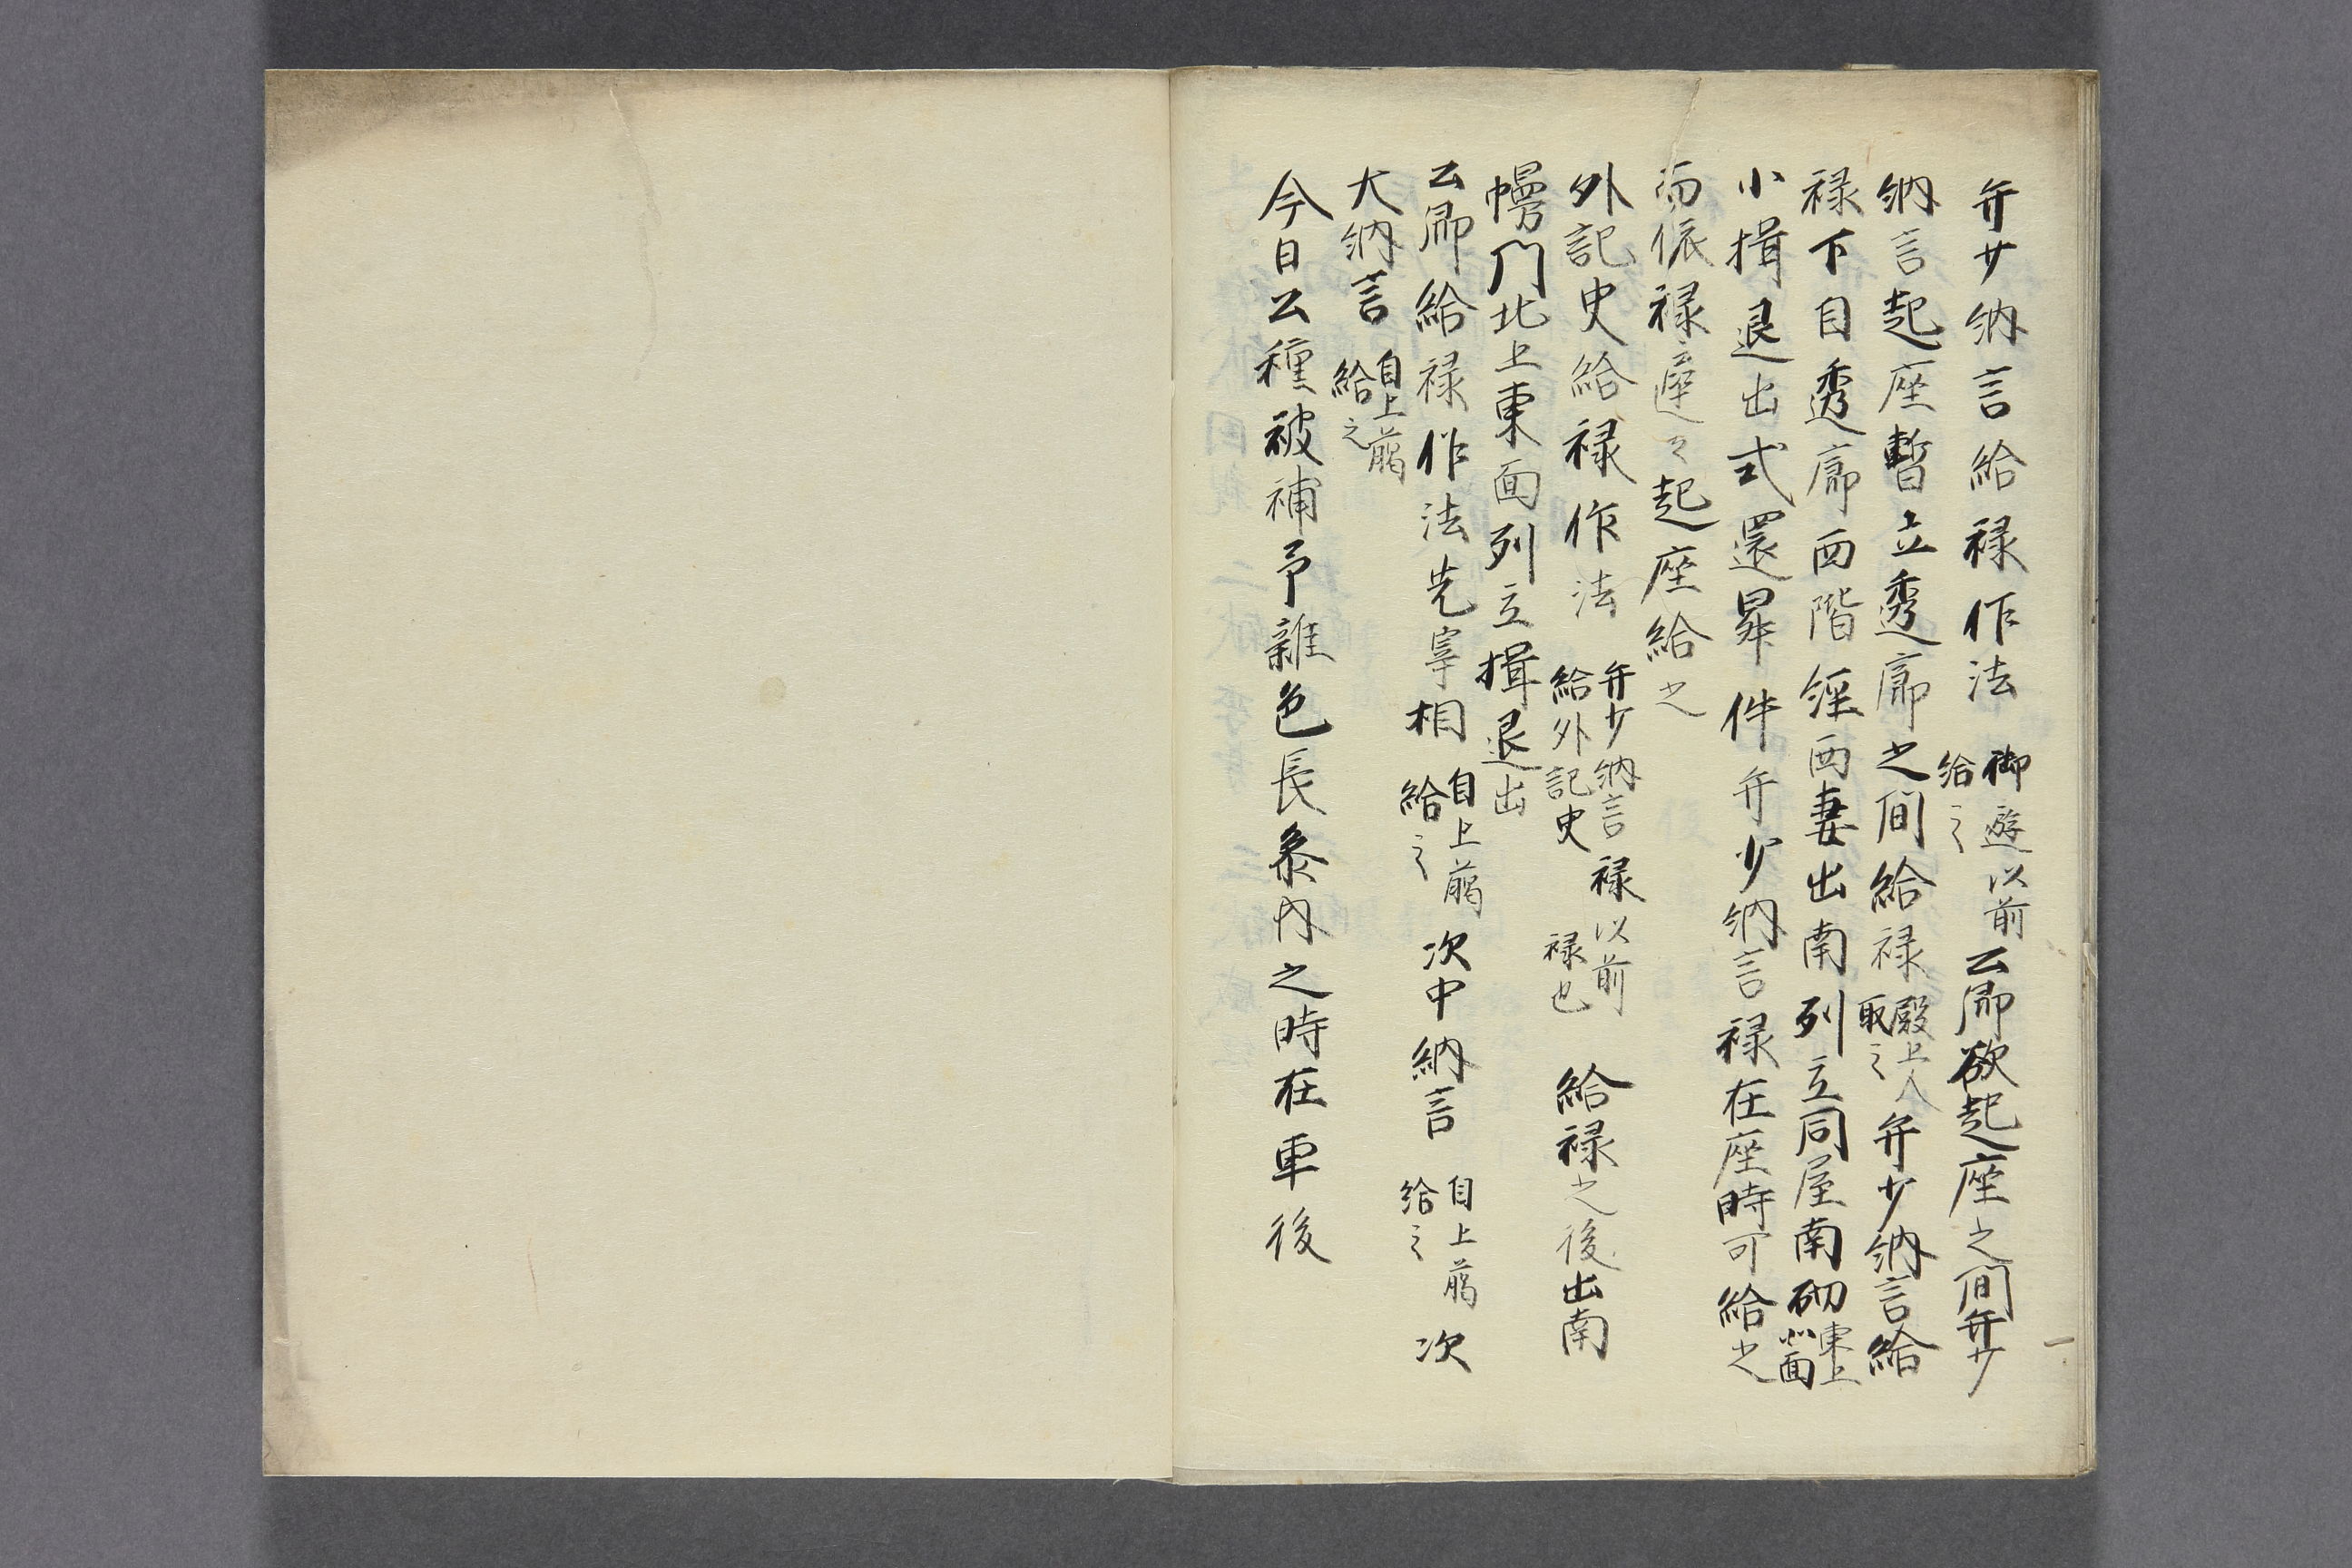 弁少納言給禄作法御遊以前給之公卿欲起座之間弁少
納言起座暫立透廊之間給禄殿上人取之弁少納言給
禄下自透廊西階経西妻出南列立同屋南砌東上北面
小揖退出式還昇件弁少納言禄在座時可給之
而依禄遅々起座給之
外記史給禄作法弁少納言禄以前給外記史禄也給禄之後出南
幔門北上東面列立揖退出
公卿給禄作法先宰相自上﨟給之次中納言自上﨟給之次
大納言自上﨟給之
今日公種被補予雑色長参内之時在車後